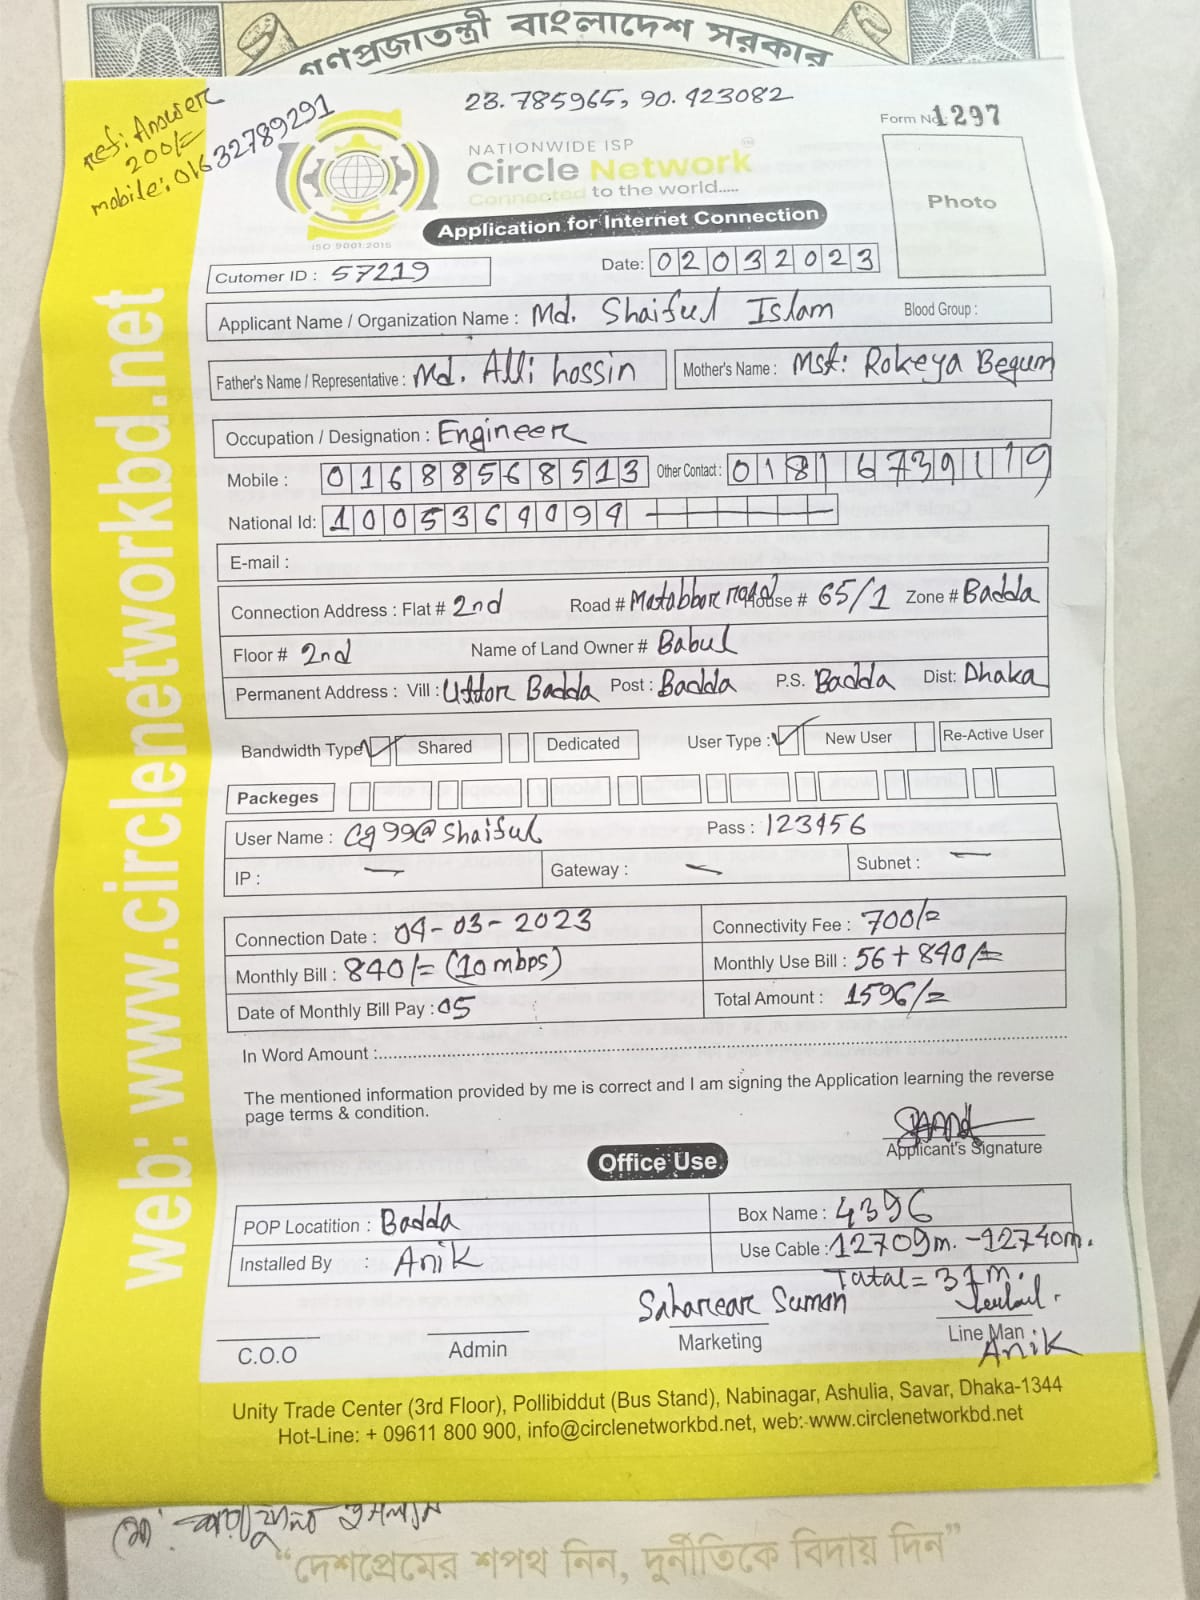 গণপ্রজাতন্ত্রী বাংলাদেশ সরকার
23.785965, 90.423082
ref: Answer
200/=
mobile: 01632789291
Form No: 1297
NATIONWIDE ISP
Circle Network
Connected to the world.....
ISO 9001:2015
Application for Internet Connection
Photo
Cutomer ID : 57219
Date: 02032023
Applicant Name / Organization Name : Md. Shaiful Islam Blood Group :
Father's Name / Representative : Md. Alli hossin Mother's Name : Mst: Rokeya Begum
Occupation / Designation : Engineer
Mobile : 01688568513 Other Contact : 01816739119
National Id: 1005369099
E-mail :
Connection Address : Flat # 2nd Road # Matabbor road House # 65/1 Zone # Badda
Floor # 2nd Name of Land Owner # Babul
Permanent Address : Vill : Uttor Badda Post : Badda P.S. Badda Dist: Dhaka
Bandwidth Type Shared Dedicated User Type : New User Re-Active User
Packeges
User Name : Cg99@Shaiful Pass : 123456
IP : — Gateway : — Subnet : —
Connection Date : 04-03-2023 Connectivity Fee : 700/=
Monthly Bill : 840/= (10mbps) Monthly Use Bill : 56+840/=
Date of Monthly Bill Pay : 05 Total Amount : 1596/=
In Word Amount :
The mentioned information provided by me is correct and I am signing the Application learning the reverse
page terms & condition.
Applicant's Signature
Office Use.
POP Locatition : Badda Box Name : 4396
Installed By : Anik Use Cable : 12709m. -12740m.
Tatal = 31m.
Saharear Suman
C.O.O Admin Marketing Line Man
Anik
Unity Trade Center (3rd Floor), Pollibiddut (Bus Stand), Nabinagar, Ashulia, Savar, Dhaka-1344
Hot-Line: + 09611 800 900, info@circlenetworkbd.net, web:-www.circlenetworkbd.net
web: www.circlenetworkbd.net
“দেশপ্রেমের শপথ নিন, দুর্নীতিকে বিদায় দিন”